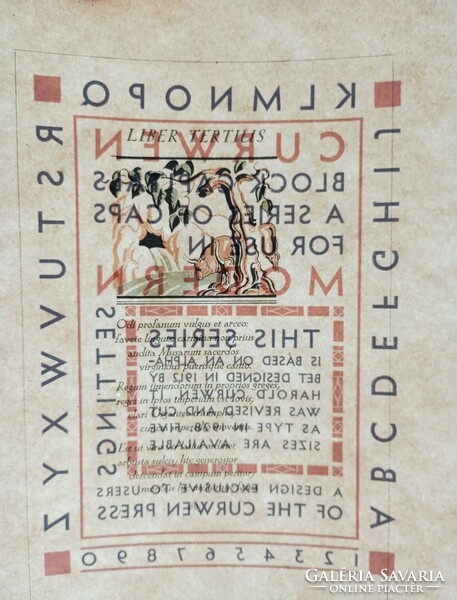 KLMNOPQ
ABCDEFGHIJ
RSTUVWXYZ
CURWEN
BLOCK
A SERIES OF CAPS
FOR USE IN
MODERN
SETTINGS
THIS SERIES
IS BASED ON AN ALPHA-
BET DESIGNED IN 1912 BY
HAROLD CURWEN IT
WAS REVISED AND CUT
AS TYPE IN 1928 FIVE
SIZES ARE AVAILABLE
A DESIGN EXCLUSIVE TO USERS
OF THE CURWEN PRESS
1234567890
LIBER TERTILIS
Odi profanum vulgus et arceo:
favete linguis: carmina non prius
audita Musarum sacerdos
virginibus puerisque canto.
Regum timendorum in proprios greges,
reges in ipsos imperium est Iovis,
clari Giganteo triumpho,
cuncta supercilio moventis.
Est ut viro vir latius ordinet
arbusta sulcis, hic generosior
descendat in campum petitor,
GALÉRIA SAVARIA
ONLINE PIACTÉR